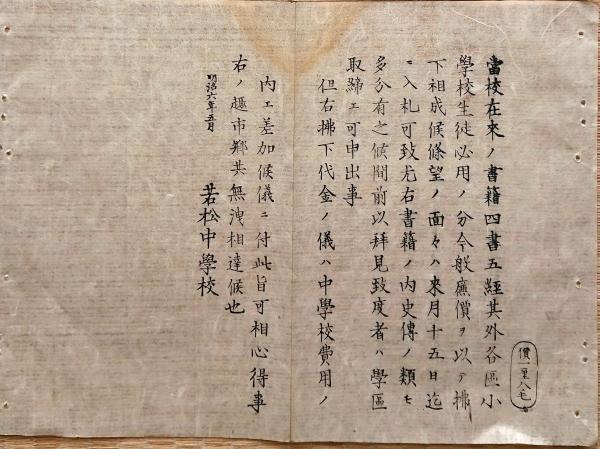 價一里八毛
當校在來ノ書籍四書五經其外各區小
學校生徒必用ノ分今般廉價ヲ以テ拂
下相成候條望ノ面々ハ來月十五日迄
ニ入札可致尤右書籍ノ内史傳ノ類モ
多分有之候間前以拜見致度者ハ學區
取締エ可申出事
但右拂下代金ノ儀ハ中學校費用ノ
内エ差加候儀ニ付此旨可相心得事
右ノ趣市鄕共無洩相達候也
明治六年五月
若松中學校